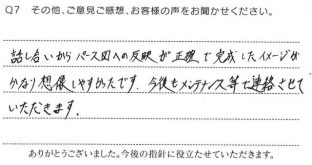 Q7 その他、ご意見ご感想、お客様の声をお聞かせください。
話し合いからパース図への反映が正確で完成したイメージが
かなり想像しやすかったです。今後もメンテナンス等で連絡させて
いただきます。
ありがとうございました。今後の指針に役立たせていただきます。